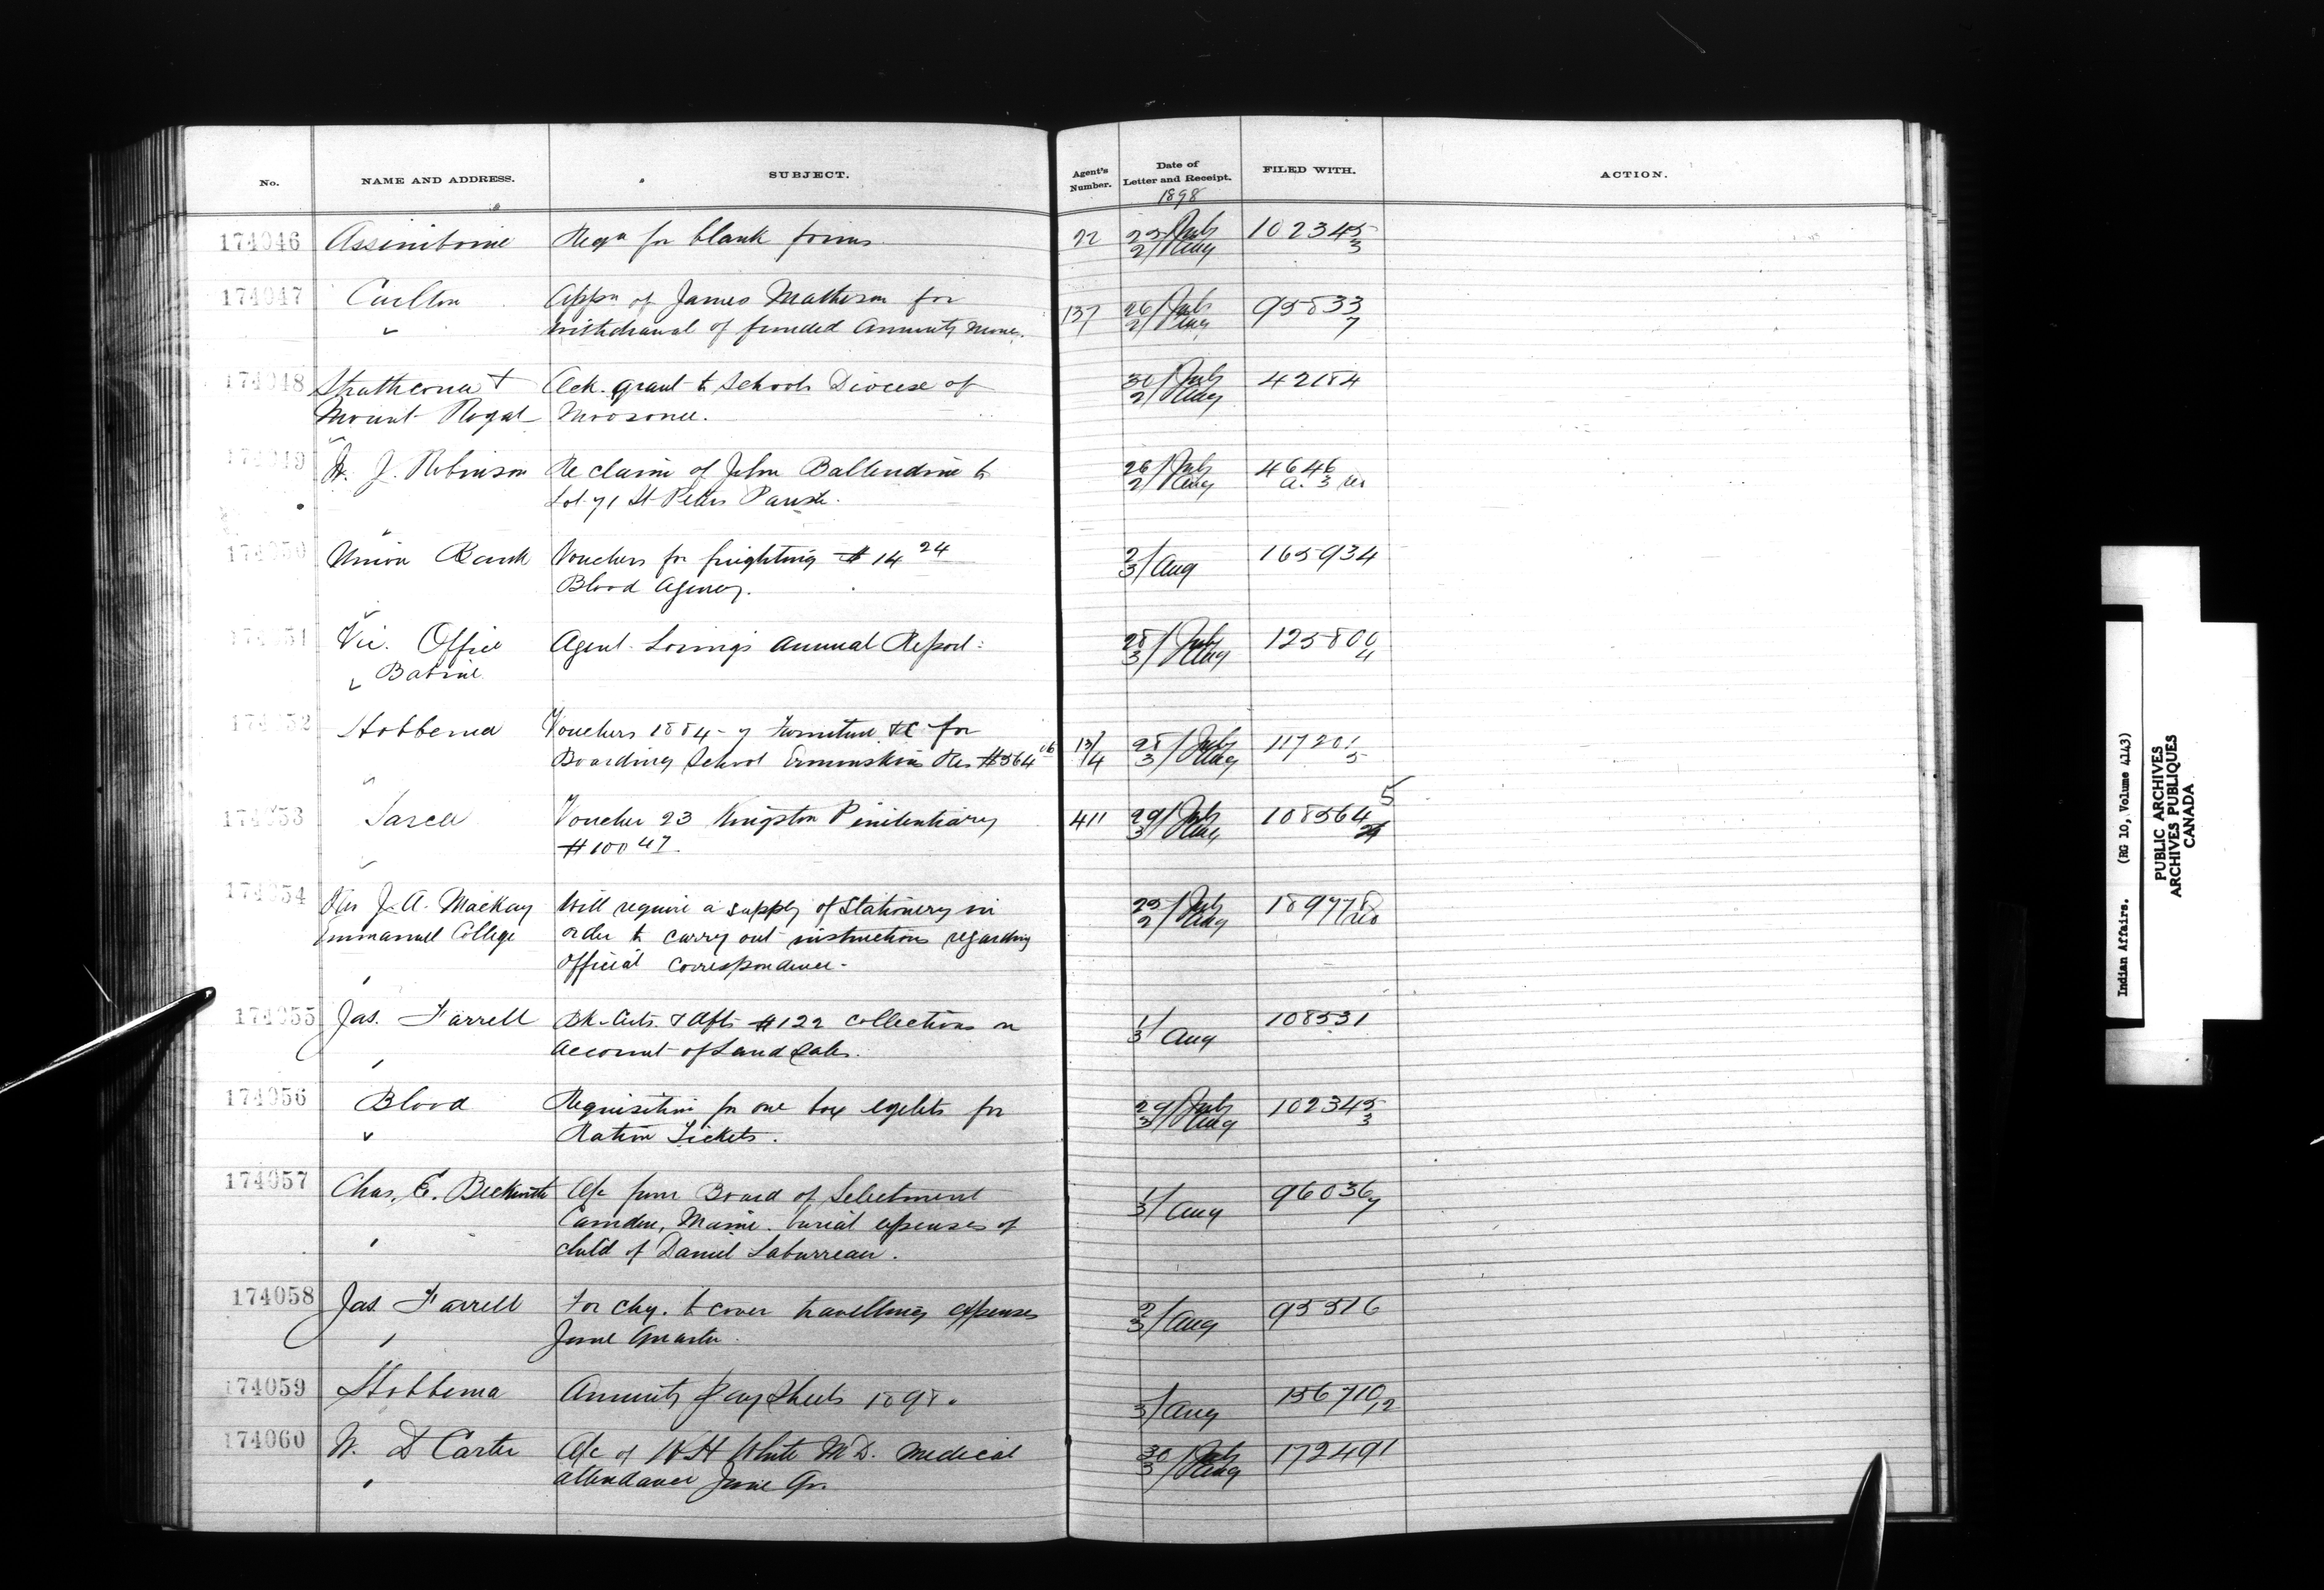 No. NAME AND ADDRESS. SUBJECT. Agent's Number. Date of Letter and Receipt. FILED WITH. ACTION.
1898
174046 Assiniboine Reqn for blank forms. 22 25/July 2/Aug 102345/3
174047 Carlton Appn of James Matheson for
withdrawal of funded Annuity money. 137 26/July 2/Aug 95833/7
174048 Strathcona & Ack. grant to Schools Diocese of 30/July 2/Aug 42184
Mount Royal Moosonee.
174049 W. J. Robinson Re claim of John Ballendine to 26/July 2/Aug 4646
Lot 71 St Peters Parish. a. 3
174050 Union Bank Vouchers for freighting $14 24 2/3/Aug 165934
Blood Agency.
174051 Vic. Office Agent Loring's Annual Report. 28/July 3/Aug 125800/4
Babine
174052 Hobbema Vouchers 1884-7 Furniture &c for
Boarding School Ermineskins Res $564 13/4 28/July 3/Aug 117201/5
174053 Sarcee Voucher 23 Kingston Penitentiary 411 29/July 3/Aug 108564 5
$100 47.
174054 Rev J. A. Mackay Will require a supply of Stationery in 25/July 2/Aug
Emmanuel College order to carry out instructions regarding
Official Correspondence.
174055 Jas. Farrell Bk. Certs. & Dfts $122 Collections on 1/3/Aug 108531
Account of Land Sales.
174056 Blood Requisition for one box eyelets for 29/July 3/Aug 102345/3
Ration Tickets.
174057 Chas. E. Beckwith A/c from Board of Selectment 1/3/Aug 96036/7
Camden, Maine. burial expenses of
child of Daniel Laburreau.
174058 Jas Farrell For chq. to cover travelling expenses 2/3/Aug 95516
June Quarter.
174059 Hobbema Annuity Pay Sheets 1898. 3/Aug 156710/12
174060 W. D Carter A/c of W H White M.D. Medical 30/July 3/Aug 172491
attendance June Qr.
Indian Affairs. (RG 10, Volume 4143)
PUBLIC ARCHIVES
ARCHIVES PUBLIQUES
CANADA